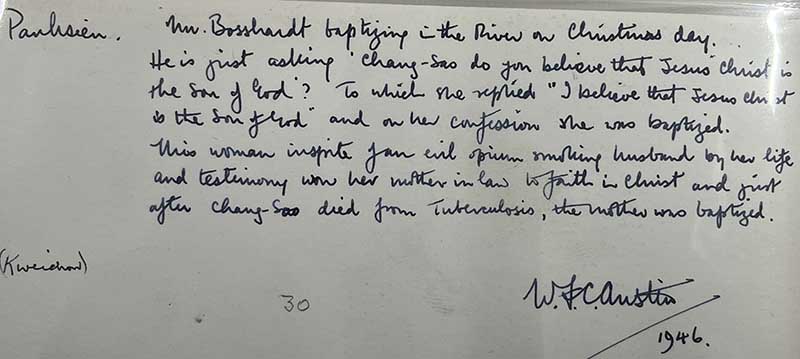 Panhsien. Mr. Bosshardt baptizing in the River on Christmas day...
He is just asking 'Chang-Sao do you believe that Jesus Christ is
the Son of God'? To which she replied "I believe that Jesus Christ
is the Son of God" and on her confession she was baptized.
This woman inspite of an evil opium smoking husband by her life
and testimony won her mother in law to faith in Christ and just
after Chang-Sao died from Tuberculosis, the mother was baptized.
(Kweichow)
30
W.F.C. Austin
1946.